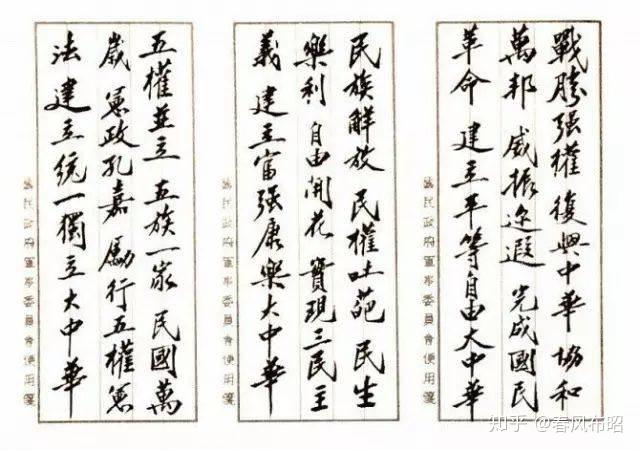 戰勝强權 復興中華 協和
萬邦 威振迩遐 完成國民
革命 建立平等自由大中華
國民政府軍事委員會便用箋
民族解放 民權吐葩 民生
樂利 自由開花 實現三民主
義 建立富强康樂大中華
國民政府軍事委員會便用箋
五權並立 五族一家 民國萬
歲 憲政孔嘉 勵行五權憲
法 建立統一獨立大中華
國民政府軍事委員會便用箋
知乎 @春风布昭